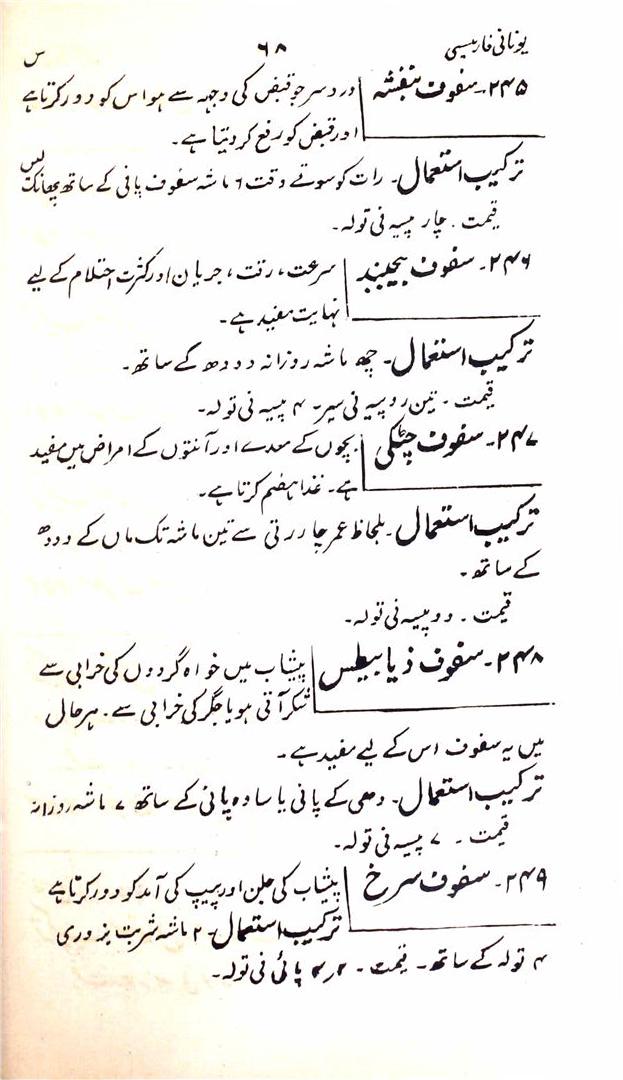 یونانی فارمیسی ۶۸ س
۲۴۵۔ سفوف بنفشہ دردسر جو قبض کی وجہہ سے ہو اس کو دور کرتا ہے
اور قبض کو رفع کر دیتا ہے۔
ترکیب استعمال۔ رات کو سوتے وقت ۶ ماشہ سفوف پانی کے ساتھ پھانک لیں
قیمت۔ چار پیسہ فی تولہ۔
۲۴۶۔ سفوف بیجبند سرعت، رقت، جریان اور کثرت احتلام کے لیے
نہایت مفید ہے۔
ترکیب استعمال۔ چھ ماشہ روزانہ دودھ کے ساتھ۔
قیمت۔ تین روپیہ فی سیر۔ ۴ پیسہ فی تولہ۔
۲۴۷۔ سفوف چٹکی بچوں کے معدے اور آنتوں کے امراض میں مفید
ہے۔ غذا ہضم کرتا ہے۔
ترکیب استعمال۔ بلحاظ عمر چار رتی سے تین ماشہ تک ماں کے دودھ
کے ساتھ۔
قیمت۔ دو پیسہ فی تولہ۔
۲۴۸۔ سفوف ذیابیطس پیشاب میں خواہ گردوں کی خرابی سے
شکر آتی ہو یا جگر کی خرابی سے۔ ہر حال
میں یہ سفوف اس کے لیے مفید ہے۔
ترکیب استعمال۔ دھی کے پانی یا سادہ پانی کے ساتھ ۷ ماشہ روزانہ
قیمت۔ ۷ پیسہ فی تولہ۔
۲۴۹۔ سفوف سرخ پیشاب کی جلن اور پیپ کی آمد کو دور کرتا ہے
ترکیب استعمال۔ ۲ ماشہ شربت بزوری
۴ تولہ کے ساتھ۔ قیمت۔ پائی فی تولہ۔